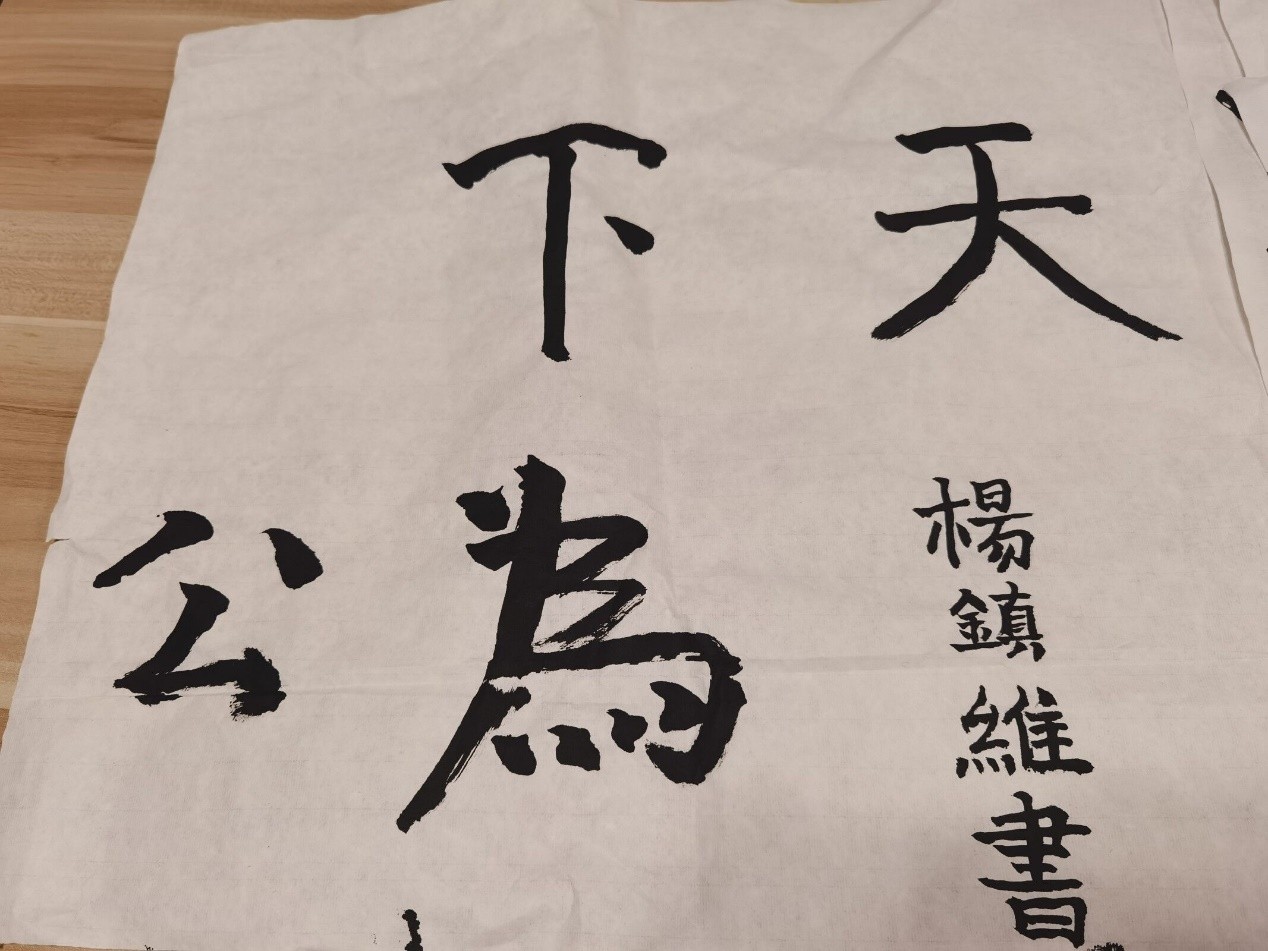 天
下
為
公
楊鎮維書